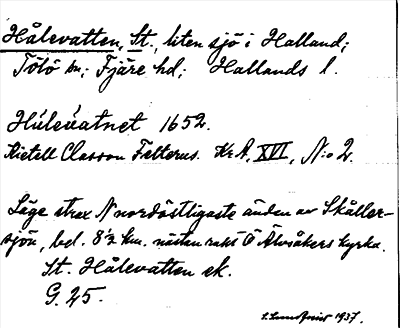 Hålevatten, St., liten sjö i Halland;
Tölö sn; Fjäre hd; Hallands l.
Húlevatnet 1652.
Kietell Classon Felterus. Kr. A, XVI, N:o 2.
Läge strax N nordöstligaste änden av Skåller-
sjön, bel. 8½ km. nästan rakt Ö Älvsåkers kyrka.
St. Hålevatten ek.
G. 25.
1937.